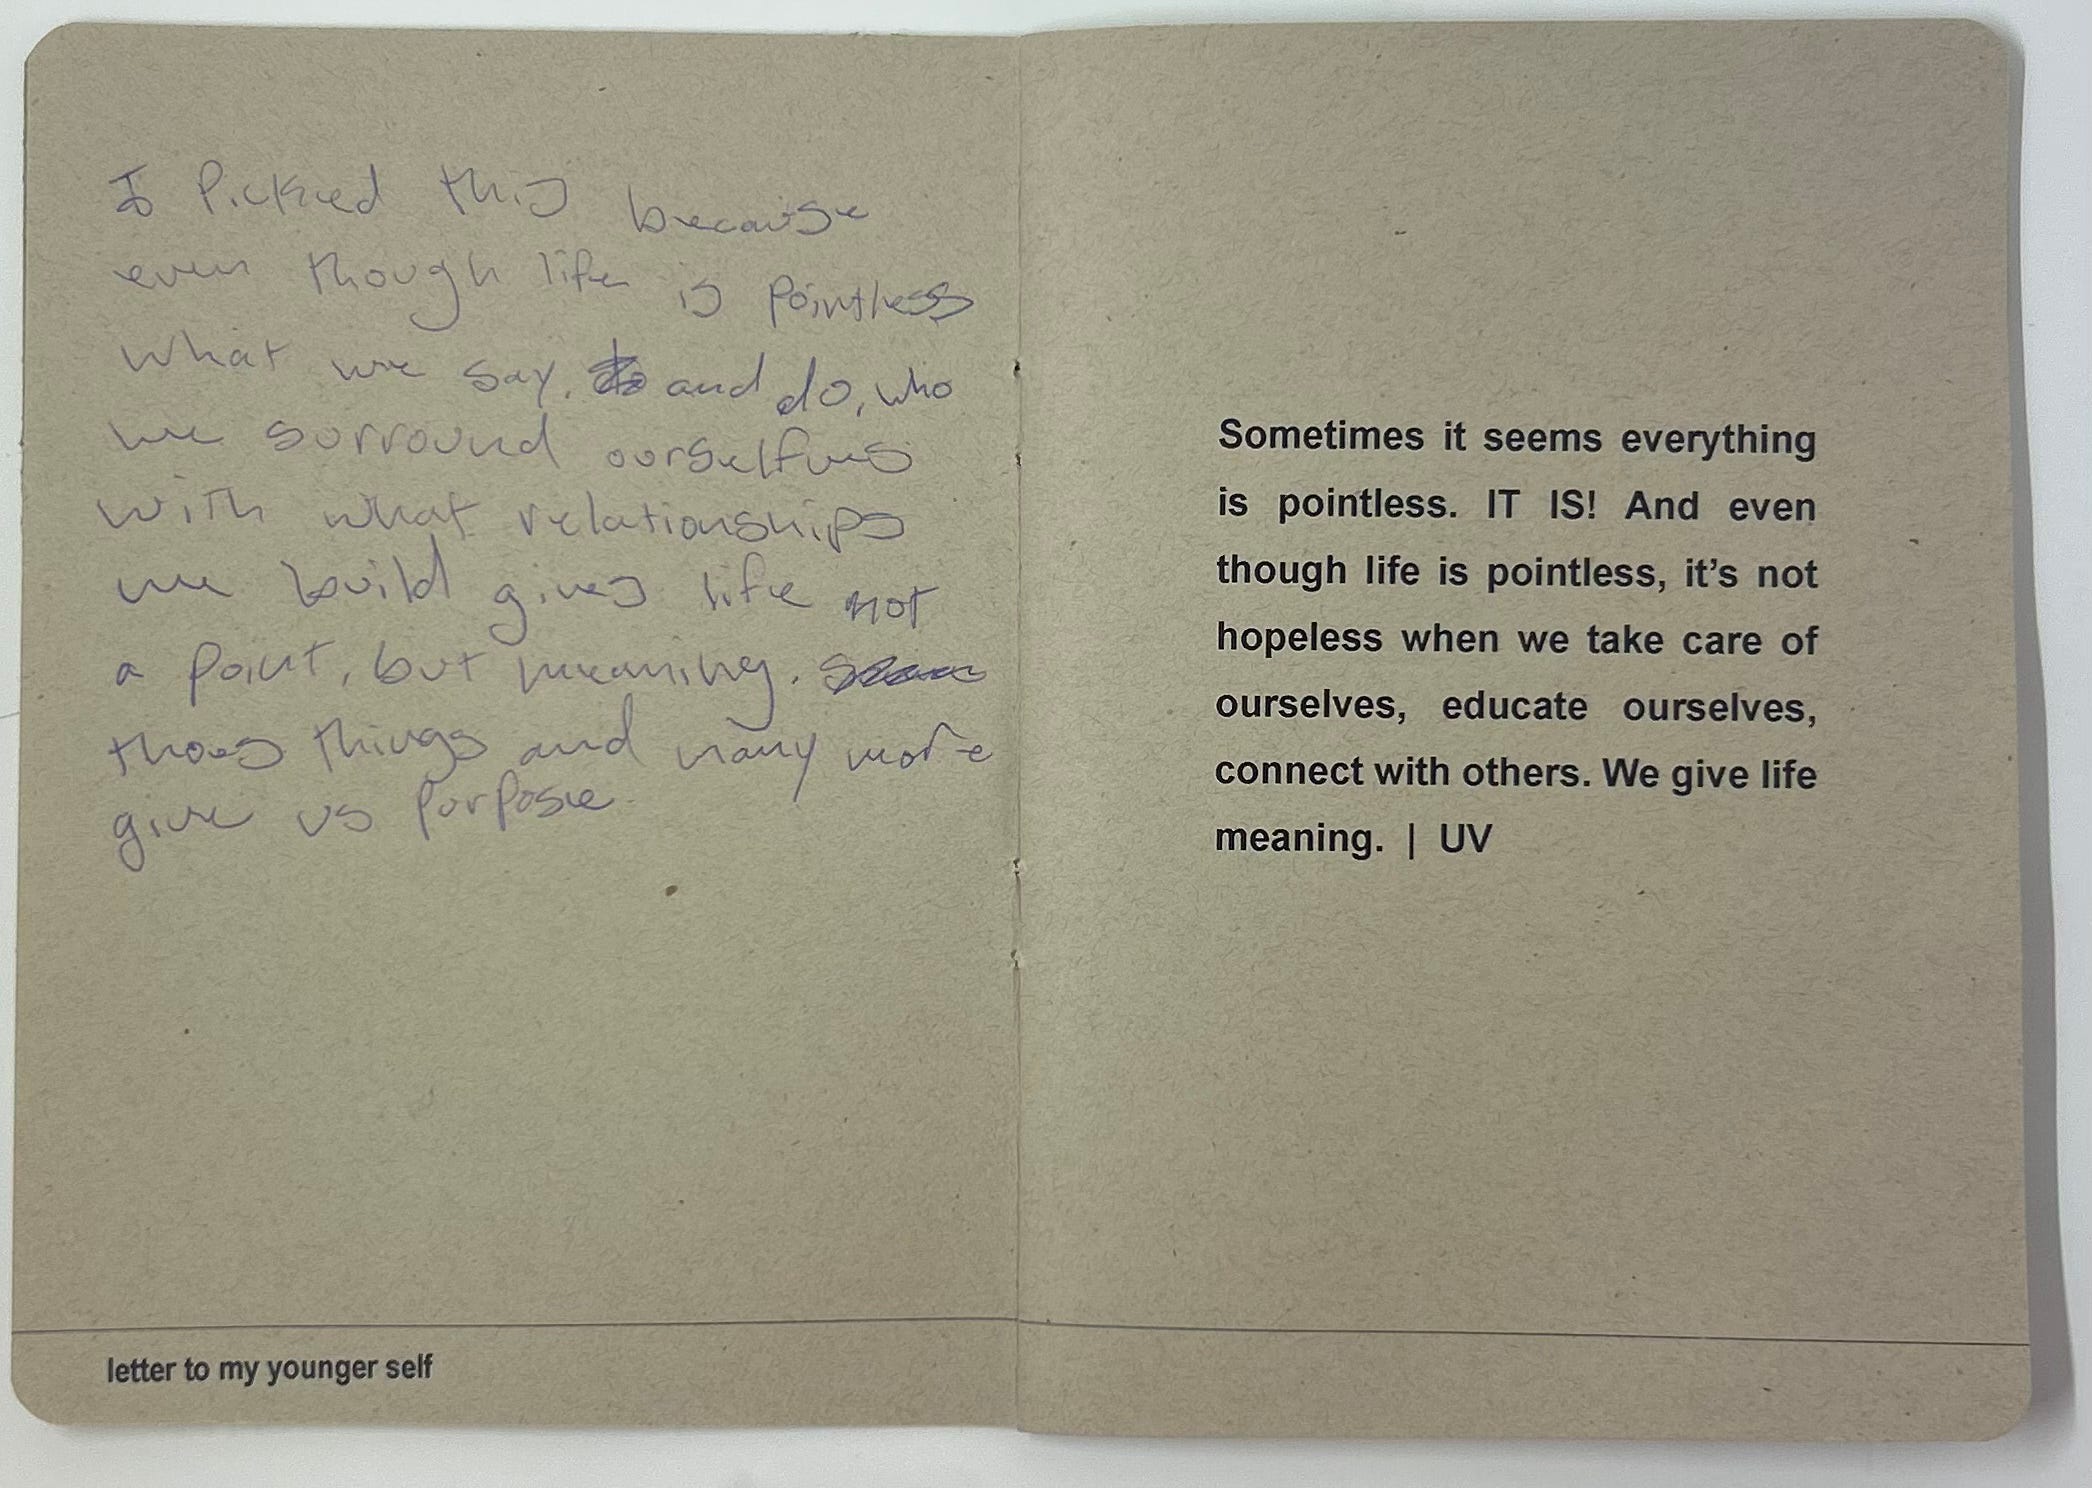 I Picked this because
even though life is pointless
what we say, and do, who
we surround ourselfves
with what relationships
we build gives life not
a point, but meaning.
thoes things and many more
give us purpose.
letter to my younger self
Sometimes it seems everything
is pointless. IT IS! And even
though life is pointless, it's not
hopeless when we take care of
ourselves, educate ourselves,
connect with others. We give life
meaning. | UV